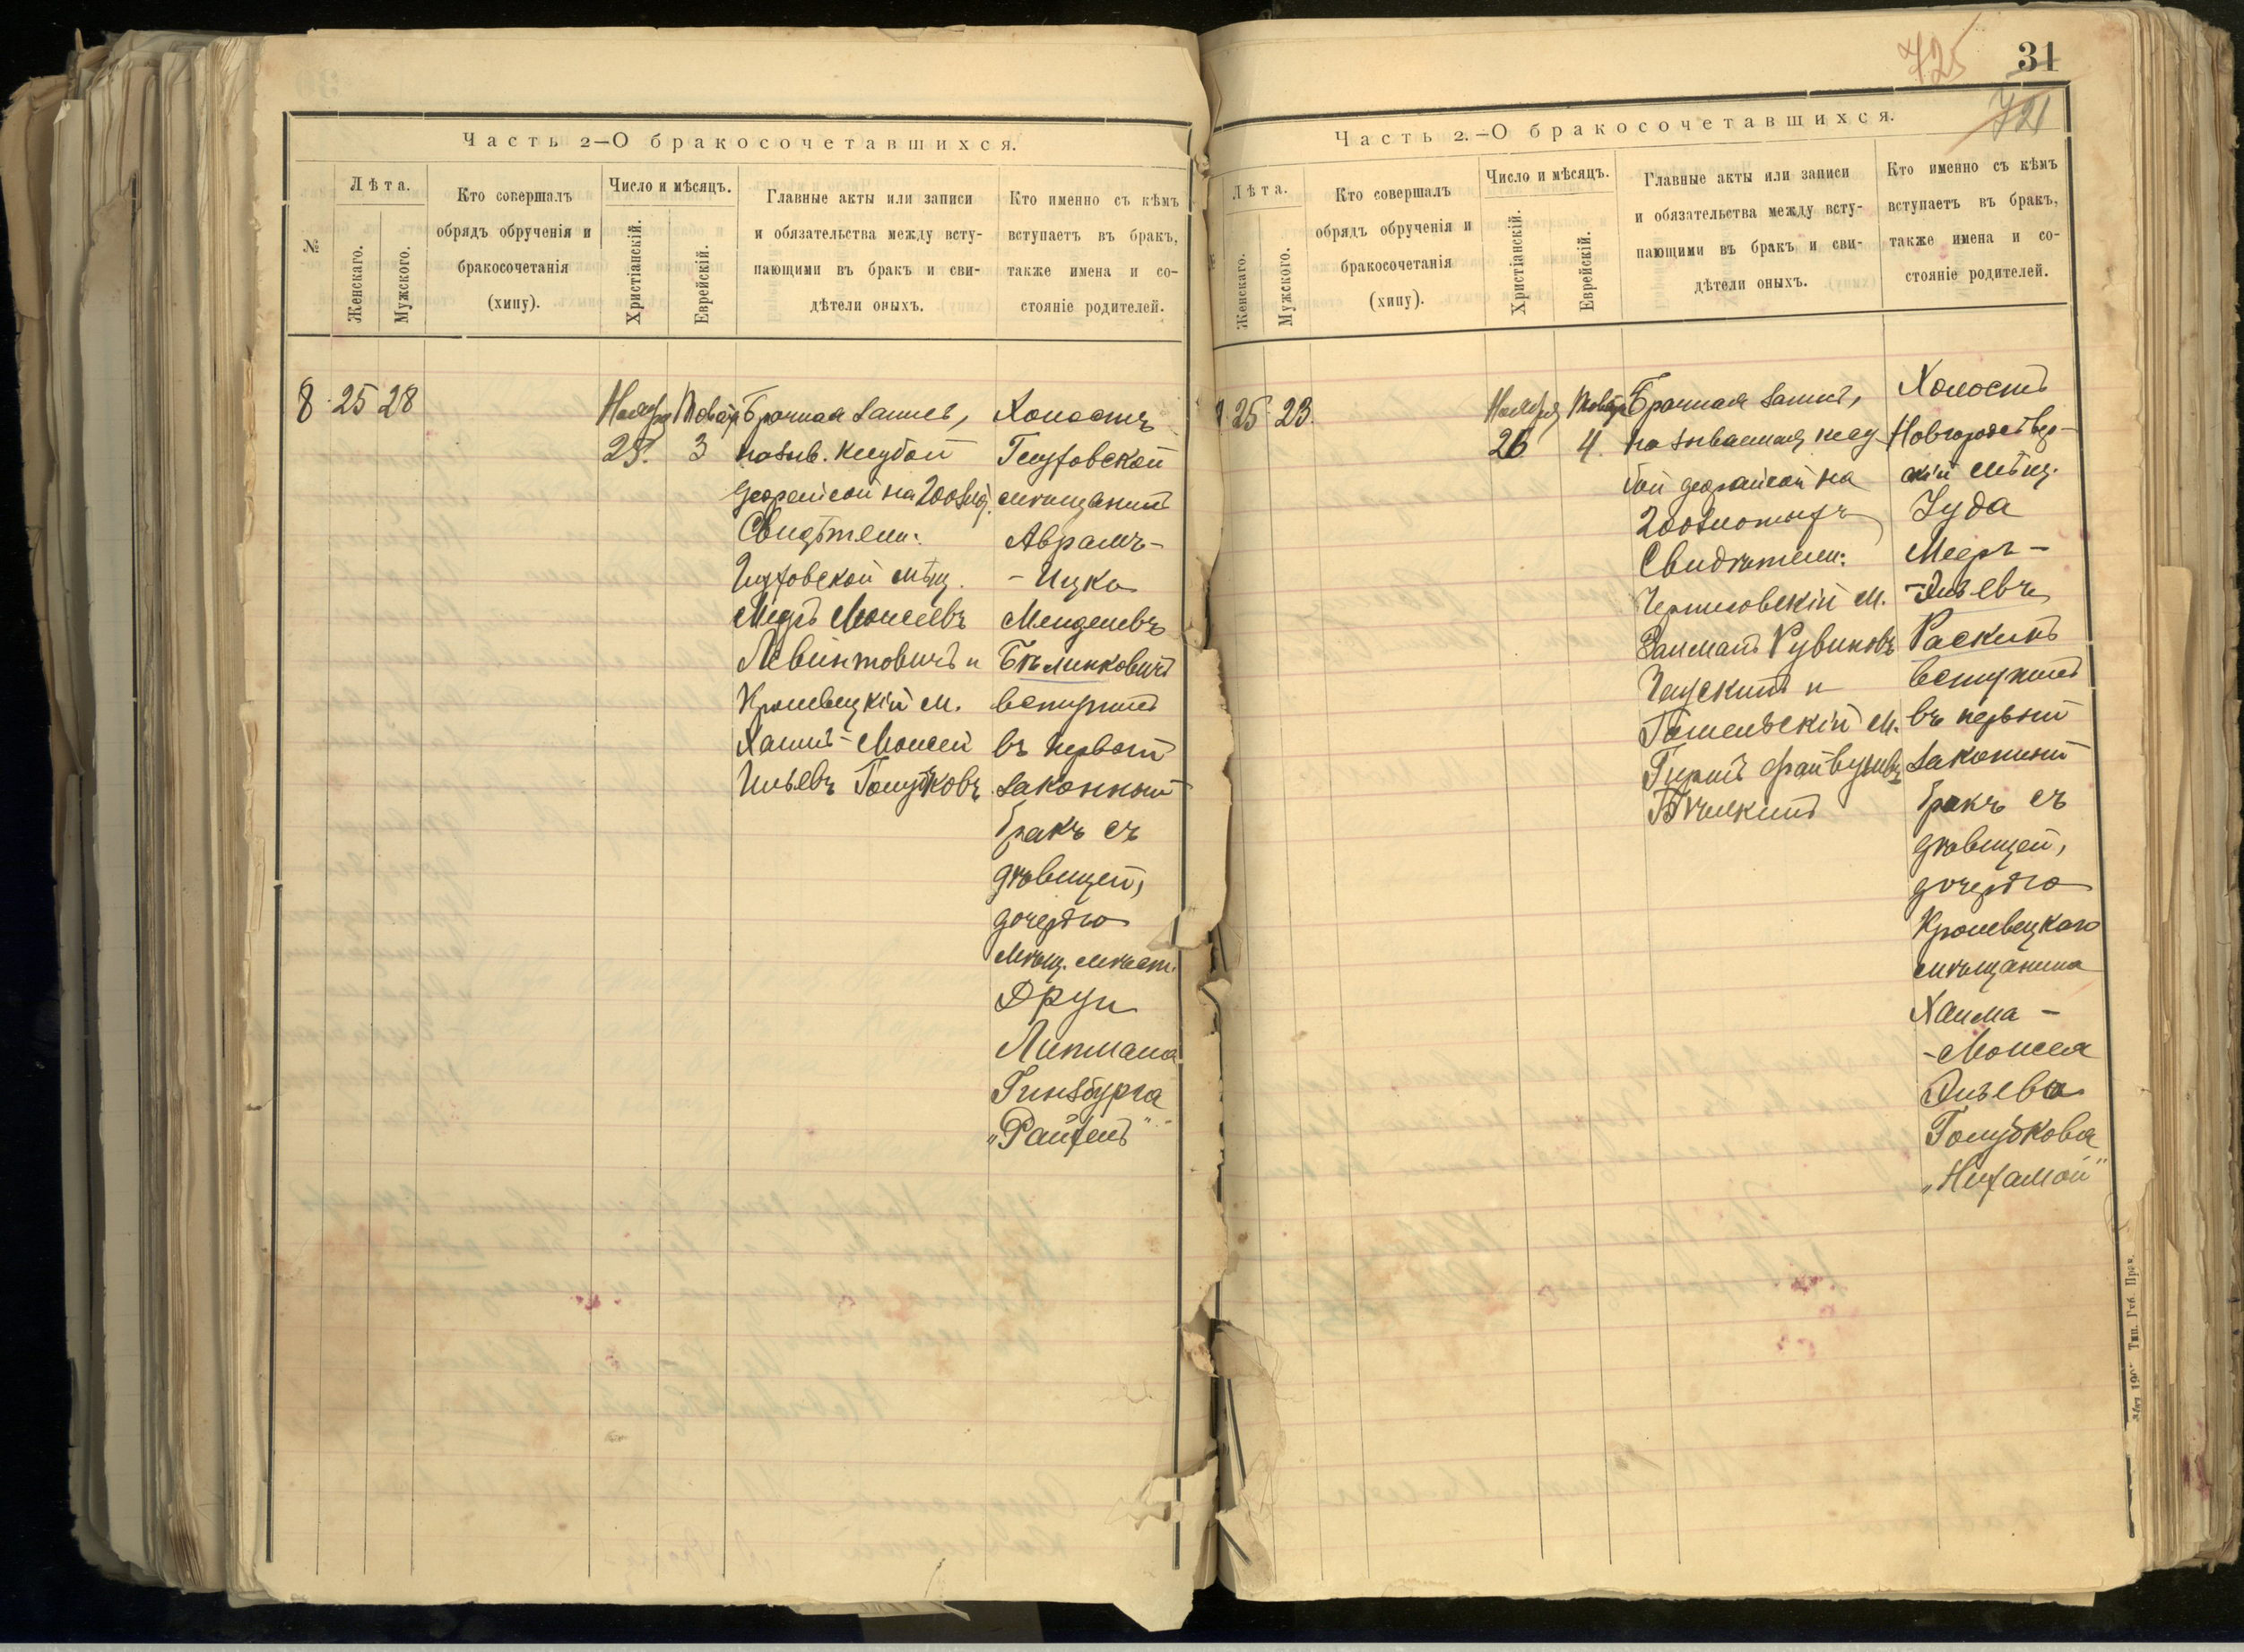 Часть 2—О бракосочетавшихся.
№
Лѣта.
Женскаго.
Мужского.
Кто совершалъ
обрядъ обрученія и
бракосочетанія
(хипу).
Число и мѣсяцъ.
Христіанскій.
Еврейскій.
Главные акты или записи
и обязательства между всту-
пающими въ бракъ и сви-
дѣтели оныхъ.
Кто именно съ кѣмъ
вступаетъ въ бракъ,
также имена и со-
стояніе родителей.
8 25 28
Ноября
25. 3
Брачная запись,
назыв. ксубой
на 200 злот.
Свидѣтели:
Глуховской мѣщ.
Меръ Моисеевъ
Левинтовичъ и
Кролевецкій м.
Хаимъ-Моисей
Ильевъ Голубковъ
Холостъ
Глуховской
мѣщанинъ
Аврамъ-
-Ицка
Менделевъ
Бѣлинковичъ
вступилъ
въ первый
законный
бракъ съ
дѣвицей,
дочерью
мѣщ. мѣст.
Друи
Липмана
Гинзбурга
„Райхель"
725
31
721
Часть 2.—О бракосочетавшихся.
Лѣта.
Женскаго.
Мужского.
Кто совершалъ
обрядъ обрученія и
бракосочетанія
(хипу).
Число и мѣсяцъ.
Христіанскій.
Еврейскій.
Главные акты или записи
и обязательства между всту-
пающими въ бракъ и сви-
дѣтели оныхъ.
Кто именно съ кѣмъ
вступаетъ въ бракъ,
также имена и со-
стояніе родителей.
25 23
Ноября
26 4.
Брачная запись,
называемая ксу-
бой на
200 злотыхъ
Свидѣтели:
Черниговскій м.
Залманъ Рувиновъ
и
Гомельскій м.
Гиршъ Файвушевъ
Холостъ
Новгородсѣвер-
скій мѣщ.
Іуда
Мееръ-
-Эльевъ
Раскинъ
вступилъ
въ первый
законный
бракъ съ
дѣвицей,
дочерью
Кролевецкаго
мѣщанина
Хаима-
-Моисея
Эльева
Голубкова
„Нехамой"
Тип. Губ. Прав.